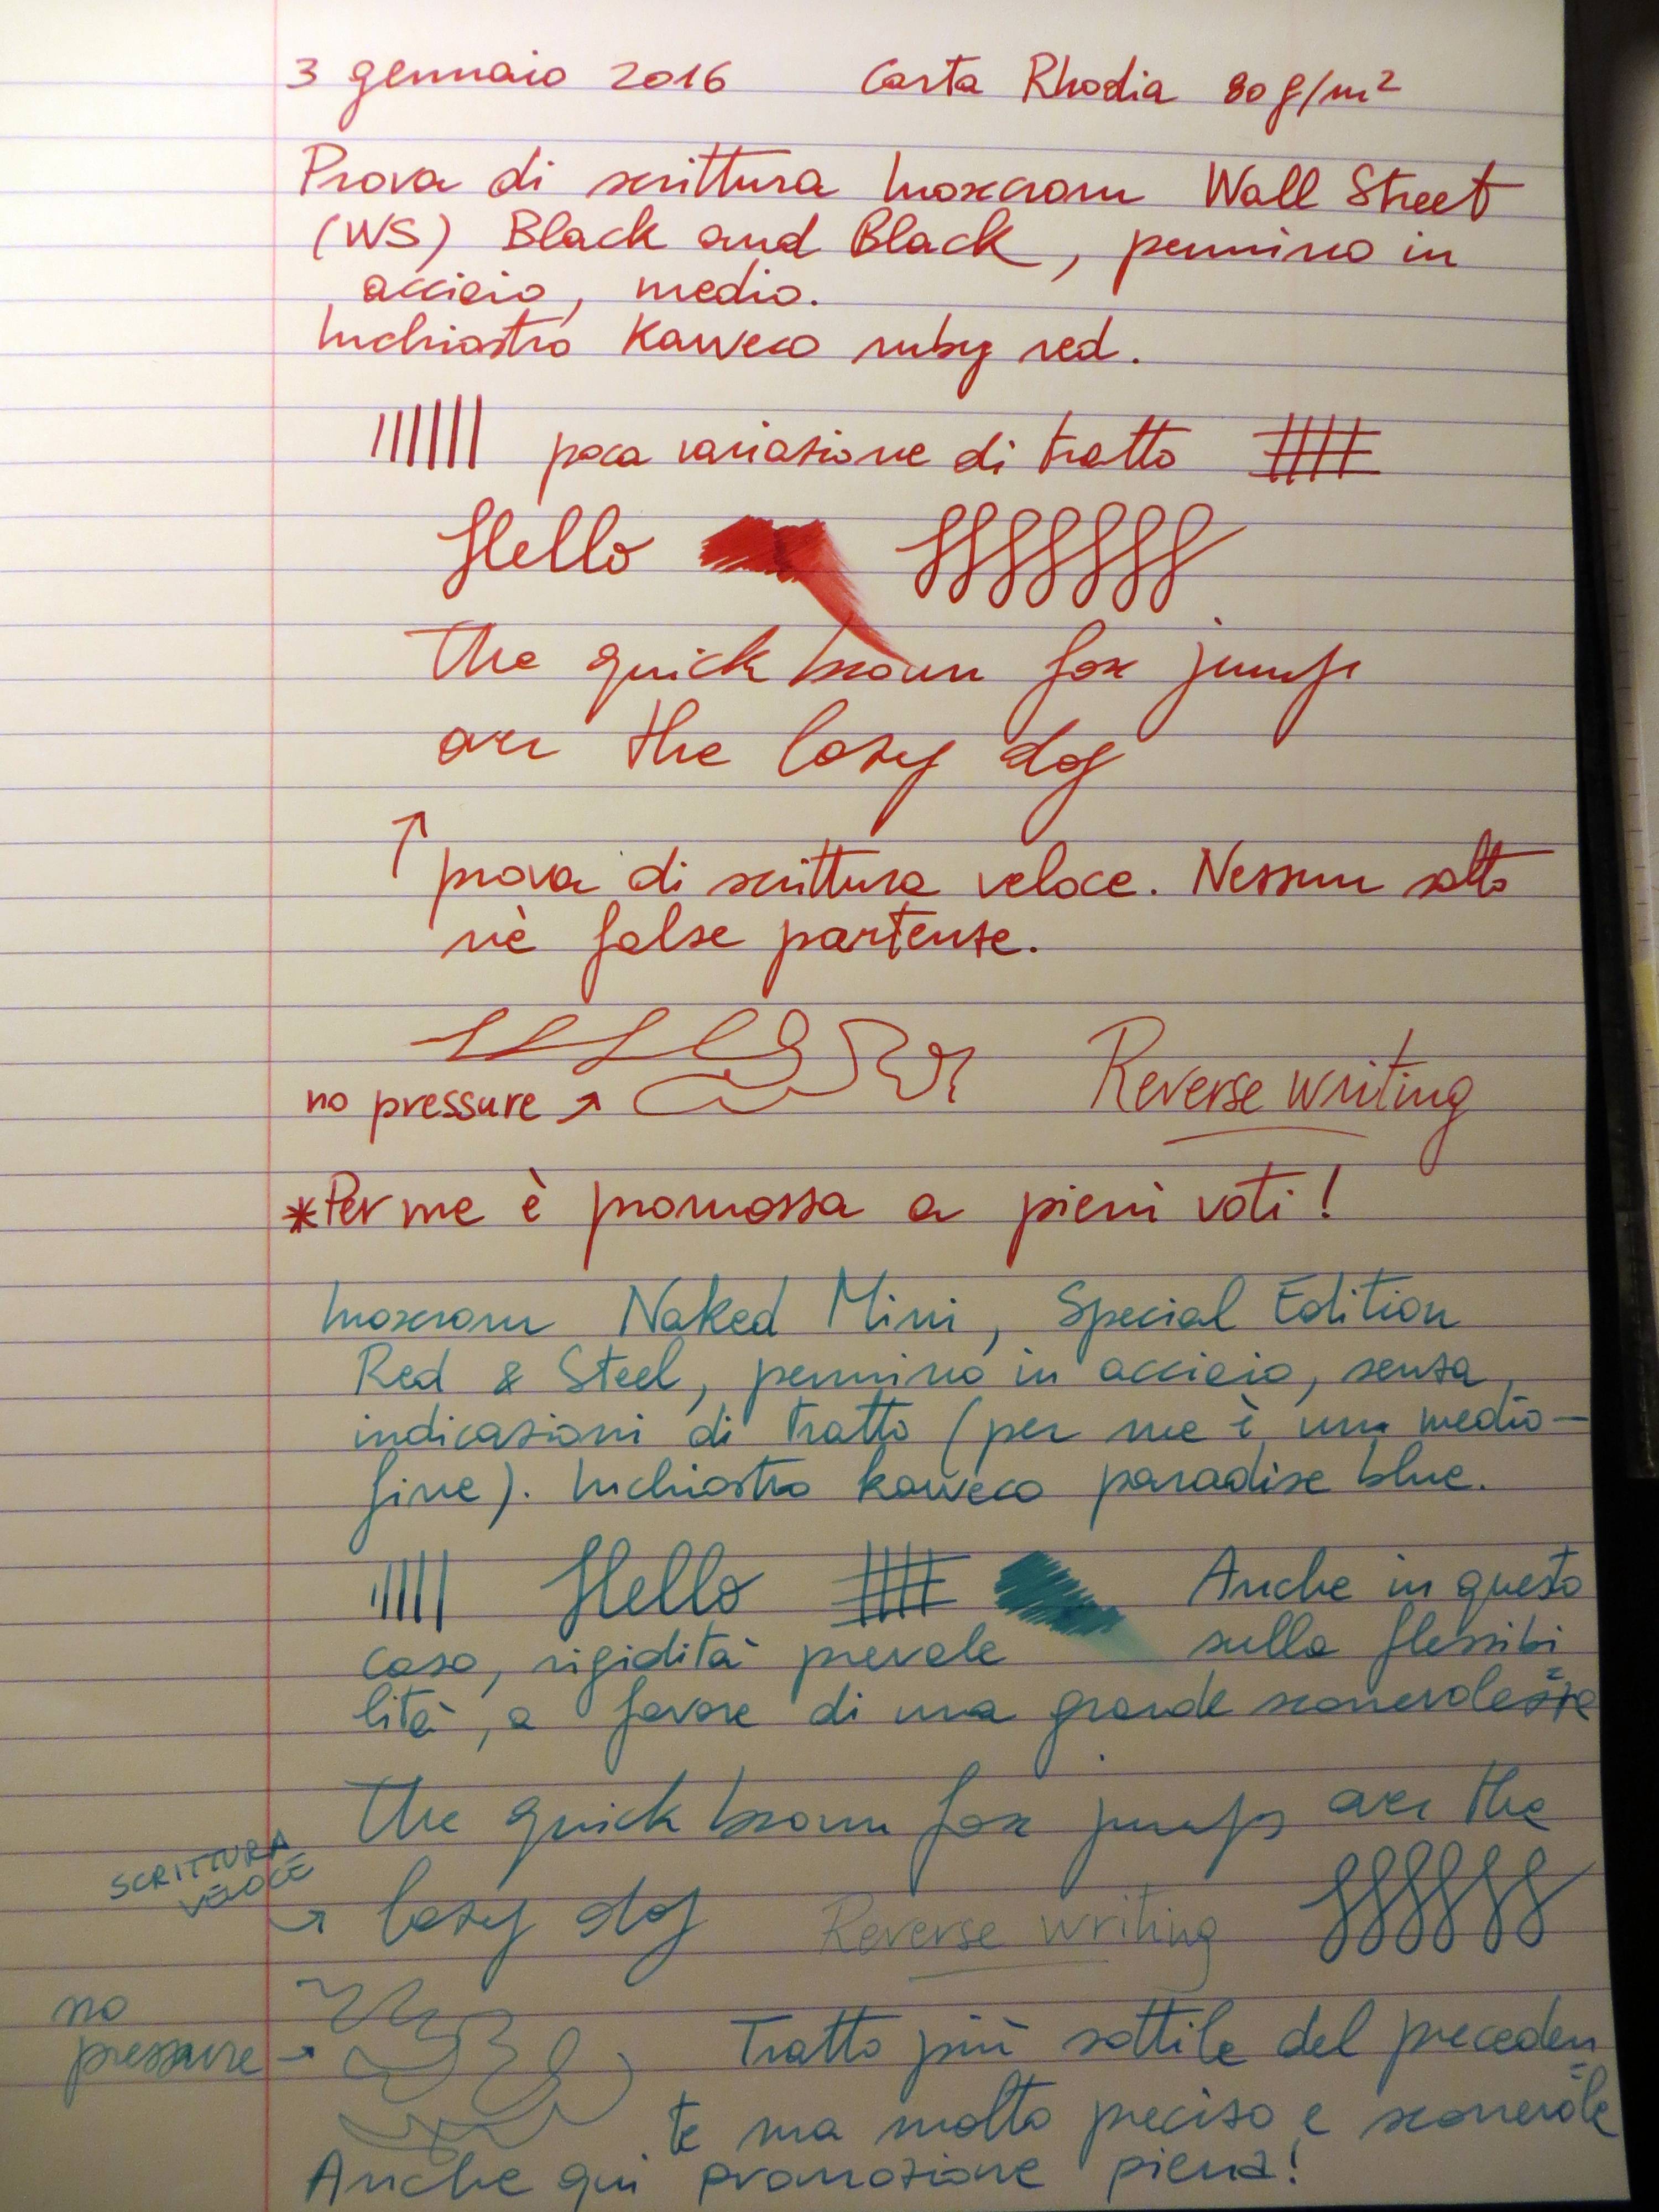 3 gennaio 2016 Carta Rhodia 80 g/m²
Prova di scrittura Inoxcrom Wall Street
(WS) Black and Black, pennino in
acciaio, medio.
Inchiostro Kaweco ruby red.
poca variazione di tratto
Hello
The quick brown fox jumps
over the lazy dog
↑ prova di scrittura veloce. Nessun salto
nè false partenze.
no pressure → Reverse writing
*Per me è promossa a pieni voti!
Inoxcrom Naked Mini, Special Edition
Red & Steel, pennino in acciaio, senza
indicazioni di tratto (per me è un medio-
fine). Inchiostro kaweco paradise blue.
Hello Anche in questo
caso, rigidità prevale sulla flessibi
lità, a favore di una grande scorrevolezza
The quick brown fox jumps over the
SCRITTURA
VELOCE
→ lazy dog Reverse writing
no
pressure → Tratto più sottile del preceden=
te ma molto preciso e scorrevole
Anche qui promozione piena!